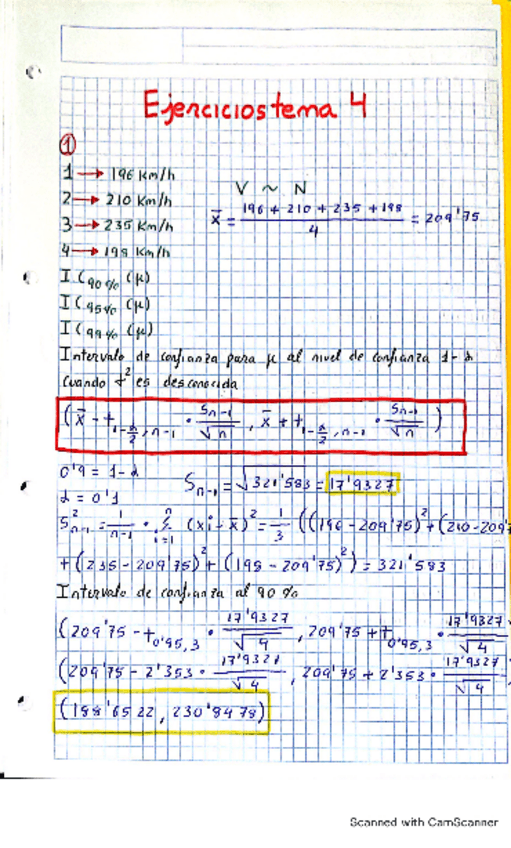 Ejercicios tema 4
①
1 → 196 Km/h
2 → 210 Km/h
3 → 235 Km/h
4 → 198 Km/h
V ~ N
x̄ = (196 + 210 + 235 + 198) / 4 = 209'75
IC90% (μ)
IC95% (μ)
IC99% (μ)
Intervalo de confianza para μ al nivel de confianza 1-α
cuando σ² es desconocida
(x̄ - t1-α/2, n-1 · Sn-1/√n , x̄ + t1-α/2, n-1 · Sn-1/√n)
0'9 = 1-α
α = 0'1
Sn-1 = √321'583 = 17'9327
S²n-1 = 1/(n-1) · Σ(i=1, n) (xi - x̄)² = 1/3 ((196 - 209'75)² + (210 - 209'7
+ (235 - 209'75)² + (198 - 209'75)²) = 321'583
Intervalo de confianza al 90%
(209'75 - t0'95,3 · 17'9327/√4 , 209'75 + t0'95,3 · 17'9327/√4
(209'75 - 2'353 · 17'9327/√4 , 209'75 + 2'353 · 17'9327/√4)
(188'6522 , 230'8478)
Scanned with CamScanner